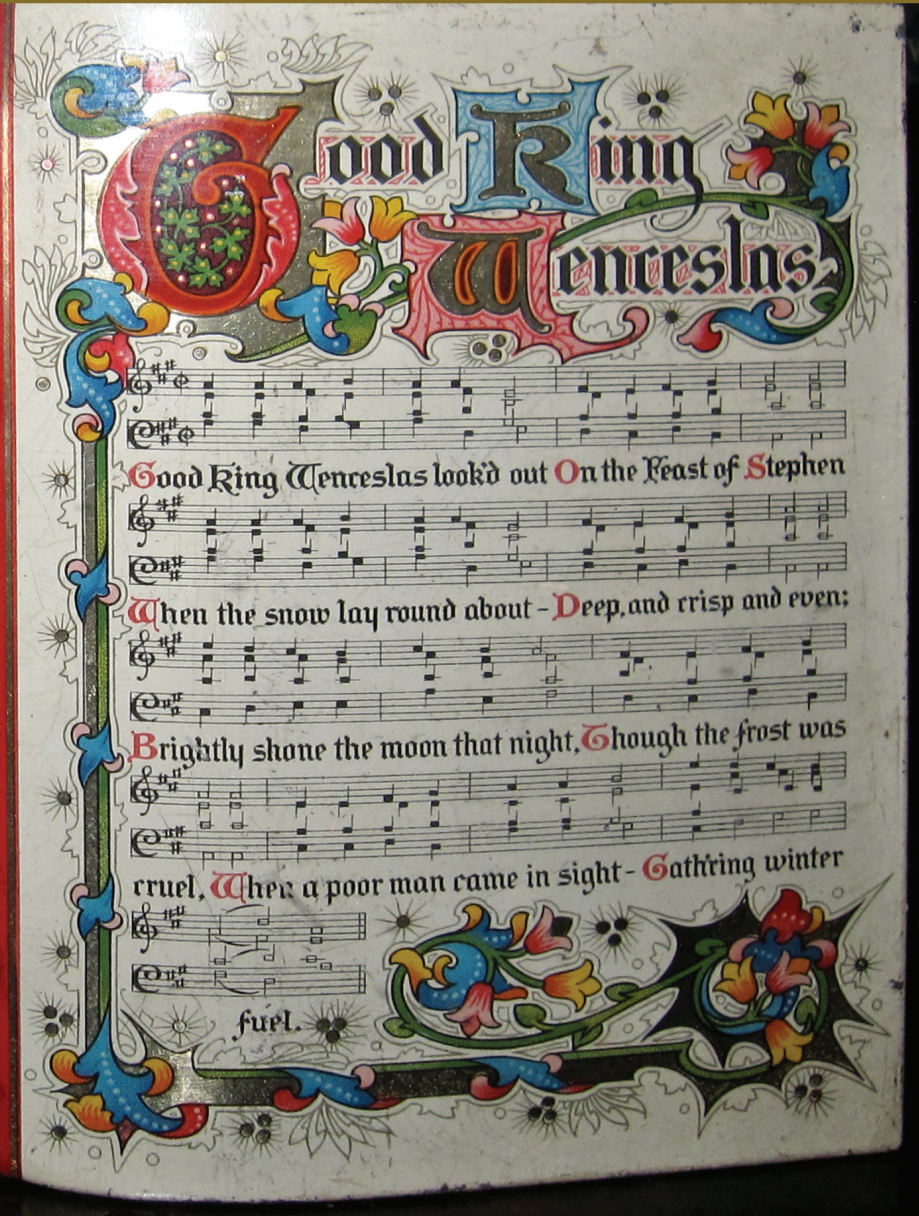 Good King
Wenceslas
Good King Wenceslas look'd out On the Feast of Stephen
When the snow lay round about - Deep, and crisp and even;
Brightly shone the moon that night, Though the frost was
cruel, When a poor man came in sight - Gath'ring winter
fuel.